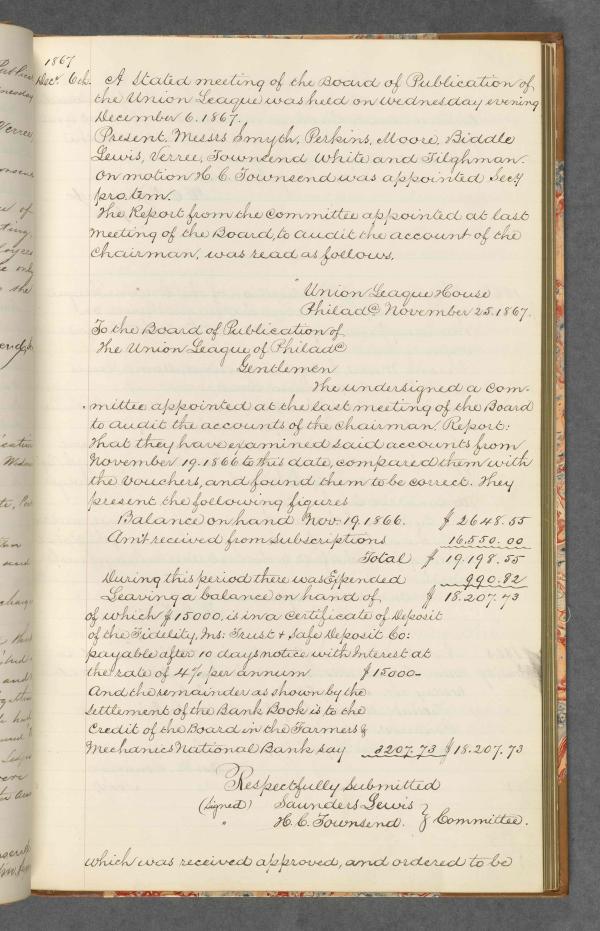 1867
Decr. 6th. A Stated meeting of the Board of Publication of
the Union League was held on Wednesday evening
December 6. 1867.
Present. Messrs Smyth, Perkins, Moore, Biddle
Lewis, Verree, Townsend White and Tilghman.
On motion H. C. Townsend was appointed Secty
pro. tem.
The Report from the Committee appointed at last
meeting of the Board, to audit the account of the
Chairman, was read as follows.
Union League House
Philada. November 25. 1867.
To the Board of Publication of
The Union League of Philada
Gentlemen
The undersigned a com-
mittee appointed at the last meeting of the Board
to audit the accounts of the Chairman, Report:
That they have examined said accounts from
November 19. 1866 to this date, compared them with
the vouchers, and found them to be correct. They
present the following figures
Balance on hand Nov. 19. 1866. $ 2648.55
Amt received from Subscriptions 16.550.00
Total $ 19.198.55
During this period there was Expended 990.82
Leaving a balance on hand of $ 18.207.73
of which $15000. is in a Certificate of Deposit
of the Fidelity, Ins: Trust & Safe Deposit Co:
payable after 10 days notice with Interest at
the rate of 4% per annum $15000-
And the remainder as shown by the
Settlement of the Bank Book is to the
Credit of the Board in the Farmers &
Mechanics National Bank say 3207.73 $18.207.73
Respectfully Submitted
(signed) Saunders Lewis
" H. C. Townsend. } Committee.
which was received approved, and ordered to be